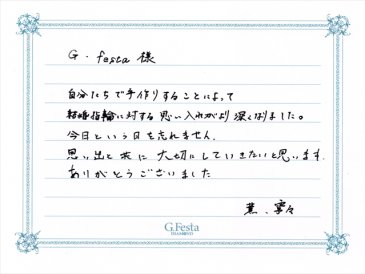 G.festa 様
自分たちで手作りすることによって
結婚指輪に対する思い入れがより深くなりました。
今日という日を忘れません.
思い出と共に 大切にしていきたいと思います.
ありがとうございました
寧々
G.Festa